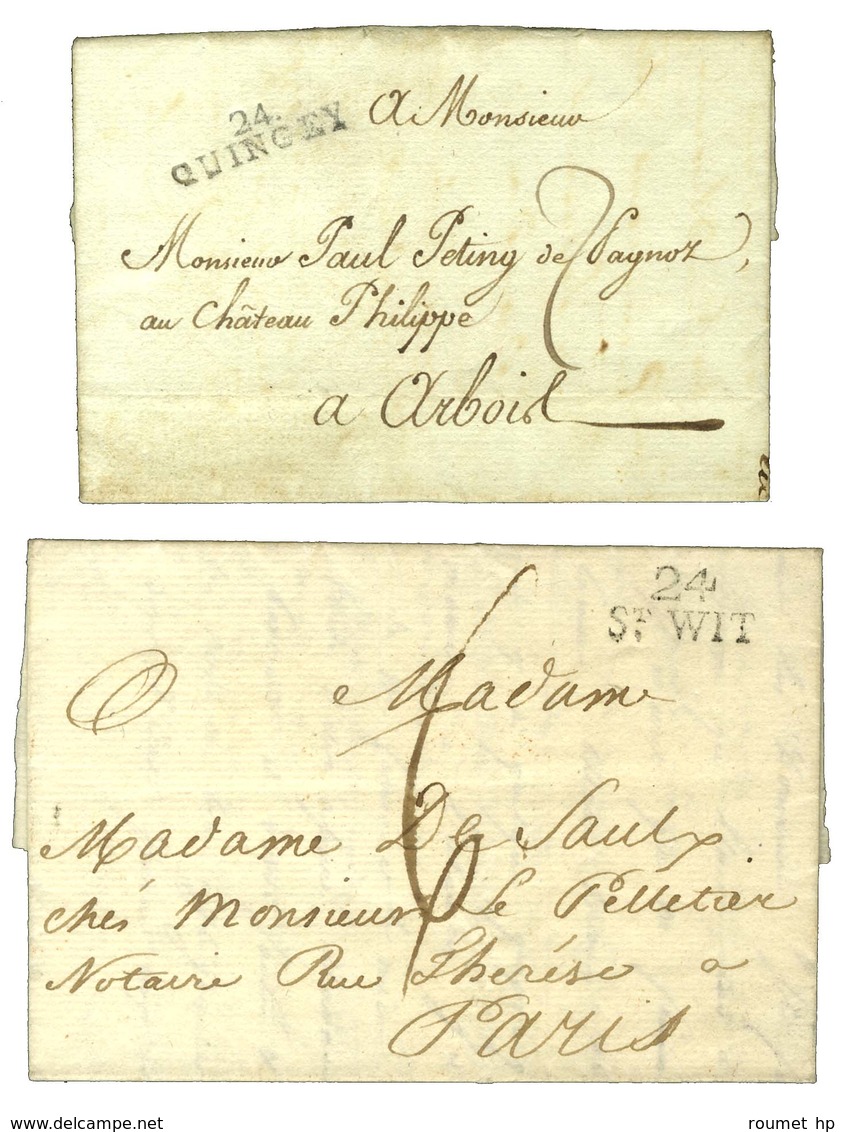 24.
QUINGEY
A Monsieur
Monsieur Paul Peting de Pagnoz,
au Château Philippe
a Arbois
2
24
ST WIT
Madame
6
Madame De Saulx
chés Monsieur Le Pelletier
Notaire Rue Therése a
Paris
www.delcampe.net
roumet hp